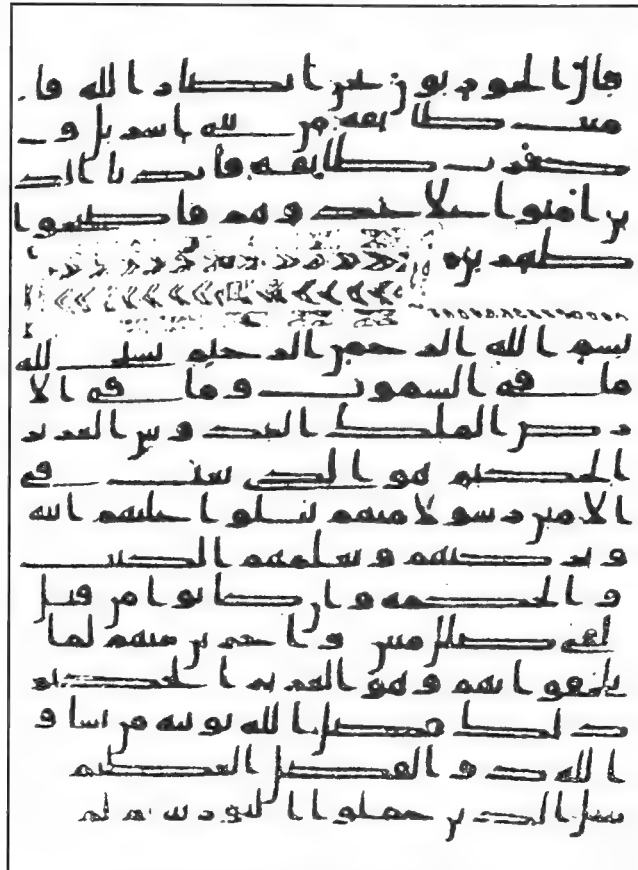 قال الحوريون نحن انصار الله فا
منت طايفه من بني اسريل و
كفرت طايفه فايدنا الذ
ين امنوا على عدوهم فاصبحوا
ظهرين
بسم الله الرحمن الرحيم يسبح لله
ما في السموت وما في الا
رض الملك القدوس العزيز
الحكيم هو الذي بعث في
الامين رسولا منهم يتلوا عليهم ايته
ويزكيهم ويعلمهم الكتب
والحكمه وان كانوا من قبل
لفي ضلل مبين واخرين منهم لما
يلحقوا بهم وهو العزيز الحكيم
ذلك فضل الله يوتيه من يشا و
الله ذو الفضل العظيم
مثل الذين حملوا التوريه ثم لم